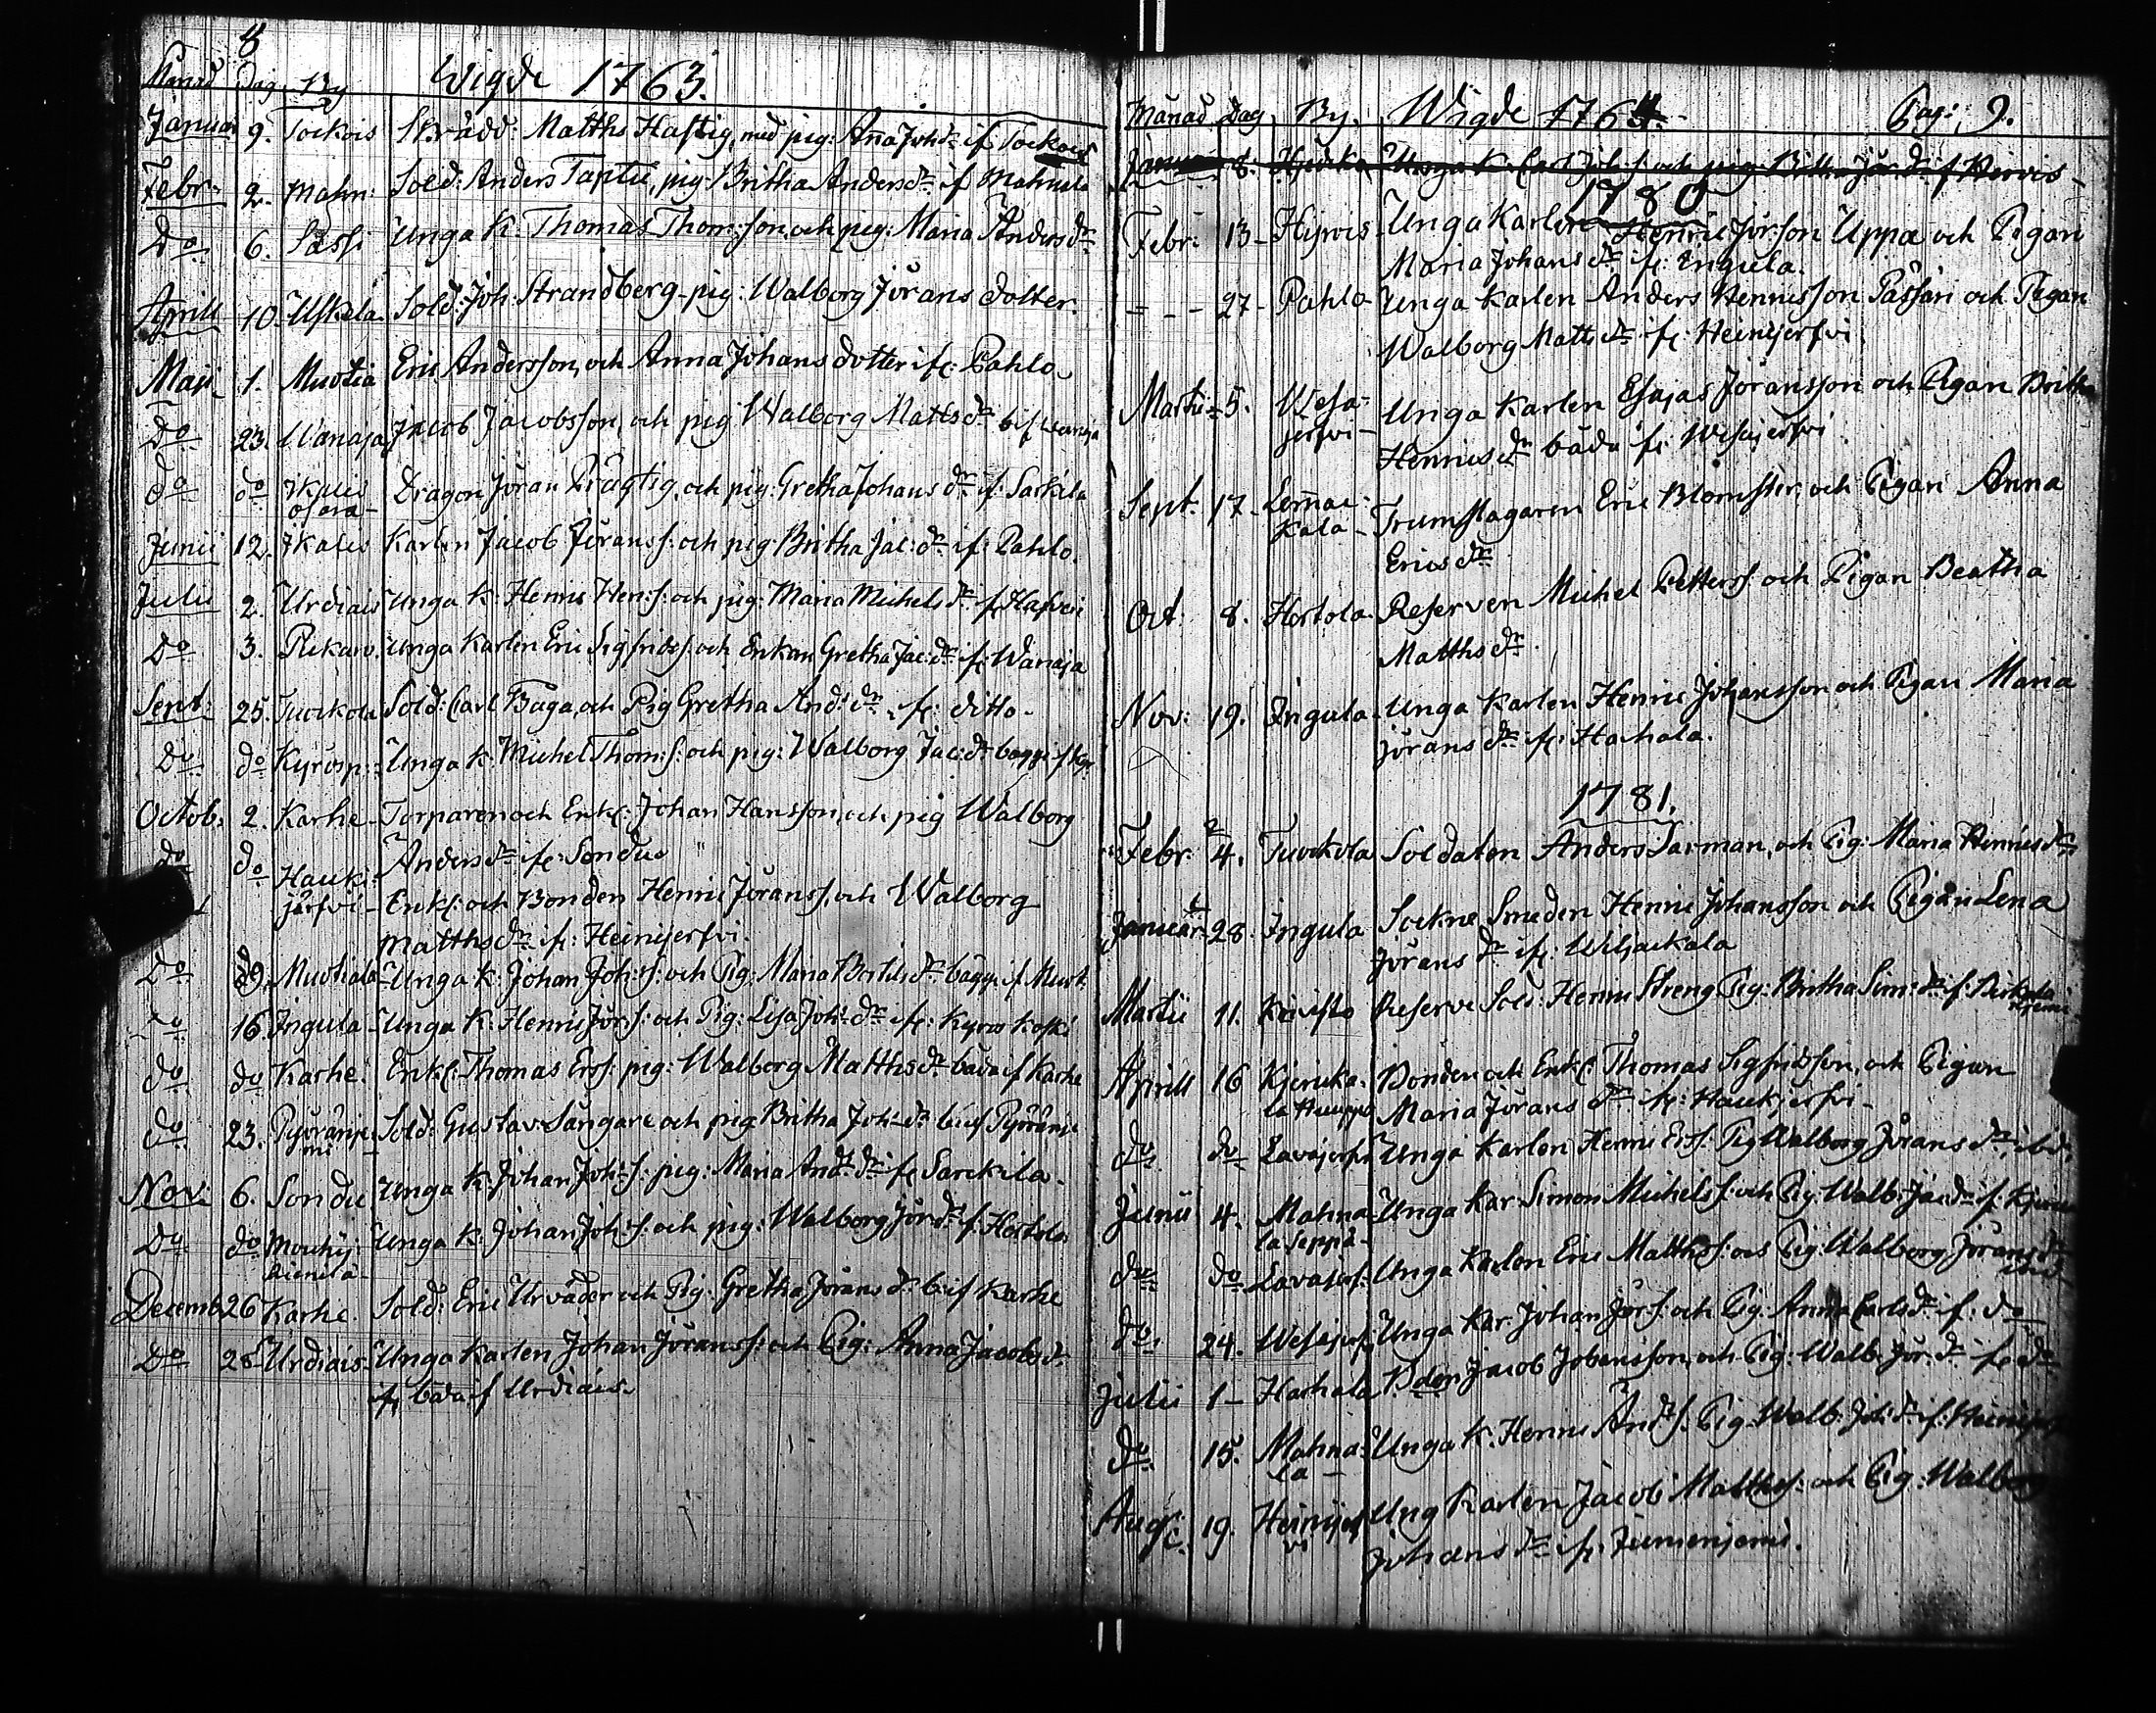 8
Månad Dag By Wigde 1763.
Januar 9. Tockois Skrädd: Matths Hastig, med pig: Aña Joh: dr if Tockois
Febr. 2. Mahn: Sold: Anders Taptu, pig: Britha Anders dr if Mahnala
Do 6. Sassi Unga K. Thomas Thom: son, och pig: Maria Anders dr
Aprill 10. Uskela Sold: Joh: Strandberg - pig: Walborg Jörans dotter.
Maji 1. Muotia Eric Andersson, och Anna Johans dotter ifr: Pahlo
Do 23. Wanaja Jacob Jacobsson, och pig Walborg Matts dr b if Wanaja
do do Ikalis Dragon Jöran Prägtig, och pig: Gretha Johans dr if: Sarkila
osara-
Junii 12. Ikalis Karlen Jacob Jörans s: och pig: Britha Jac: dr if: Pahlo.
Julii 2. Urdiais Unga K: Henric Hen: s: och pig: Maria Michels dr if Hafveri
Do 3. Pukaro. Unga Karlen Eric Sigfridss: och Enkan Gretha Jac: dr ifr Wanaja
Sept: 25. Tuockola Sold: Carl Baga, och Pig Gretha And: dr ifr: ditto.
Do do Kyrosp: Unga K. Michel Thom: s: och pig: Walborg Jac: dr bägge if Kyr
Octob: 2. Karhe Torparen och Enkl: Johan Hansson, och pig Walborg
Anders dr ifr: Sondus
do do Hauk: järfvi - Enkl: och Bonden Henric Jöranss, och Walborg
Matths dr ifr: Heinijerfvi.
Do 9. Muotiala Unga K. Johan Joh: s: och Pig: Maria Bertils dr bägge if Muot.
do 16. Ingula Unga K: Henric Jör: s: och Pig: Lisa Joh: dr ifr: Kyros koski
do do Karhe. Enkl: Thomas Ers: pig: Walborg Matths dr båda if Karhe
do 23. Pyöränje: Sold: Gustav Sångare och pig Britha Joh: dr b: if Pyöränje
mi -
Nov: 6. Sondu Unga K: Johan Joh: s: pig: Maria And: dr ifr Sarckila.
Do do Mouhij: Unga K. Johan Joh: s: och pig: Walborg Jör: dr if Hertola
Decemb 26 Karhe. Sold: Eric Urväder och Pig: Gretha Jörans dr b if Karhe
Do 28 Urdiais Unga Karlen Johan Jöranss: och Pig: Anna Jacobs d.
ifr båda if Urdiais
Månad Dag By. Wigde 1764. Pag: 9.
Januar 8. Unga K. Carl Joh: s: och pig: Britha Jör: dr if Kirvis
1780
Febr: 13 - Hijrvis - Unga Karlen Henric Jör: son Uppa och Pigan
Maria Johans dr ifr: Engula.
- - - 27 - Pahlo - Unga Karlen Anders Henricsson Passari och Pigan
Walborg Matts dr ifr: Heinijerfvi.
Martii 5. Wesa- Unga Karlen Esajas Jöransson och Pigan Britha
jerfvi - Henrics dr båda ifr: Wesajerfvi
Sept. 17. Lem̄ac- Trumslagaren Eric Blomster, och Pigan Anna
kala - Erics dr
Oct: 8. Hertola. Reserven Michel Petterss: och Pigan Beatha
Matths dr.
Nov: 19. Ingula. Unga Karlen Henric Johansson och Pigan Maria
Jörans dr ifr: Hachala.
1781.
Febr: 4. Tuockola Soldaten Anders Sarman, och Pig: Maria Henrics dr
Januar 28. Ingula Sockne Smeden Henric Johansson och Pigan Lena
Jörans dr ifr: Wiljackala
Martii 11. Kovisto Reserve Sold: Henric Streng Pig: Britha Sim: dr if: Birkala
Aprill 16 Kjeruka. Bonden och Enkl: Thomas Sigfridsson, och Pigan
la Huuppo Maria Jörans dr ifr: Haukjerfvi -
do do Lavajerfvi Unga Karlen Henric Ers: Pig Walborg Jörans dr ibid.
Junii 4. Mahna- Unga Kar: Simon Michelss: och Pig: Walb: Jac: dr if
la Seppä -
do do Lavajerf: Unga Karlen Eric Matthss: och Pig: Walborg Jörans dr
ibid -
do 24. Wesajerf: Unga Kar: Johan Jörs: och Pig. Anna Carls dr if: do
Julii 1 - Hachala Bden Jacob Johansson, och Pig: Walb. Jör: dr ifr do
do 15. Mahna- Unga K. Henric And: s: Pig: Walb. Joh: dr if: Heinijerf
la -
Aug: 19. Heinijerf Ung Karlen Jacob Matthss: och Pig: Walborg
vi Johans dr ifr: Jumenjemi.